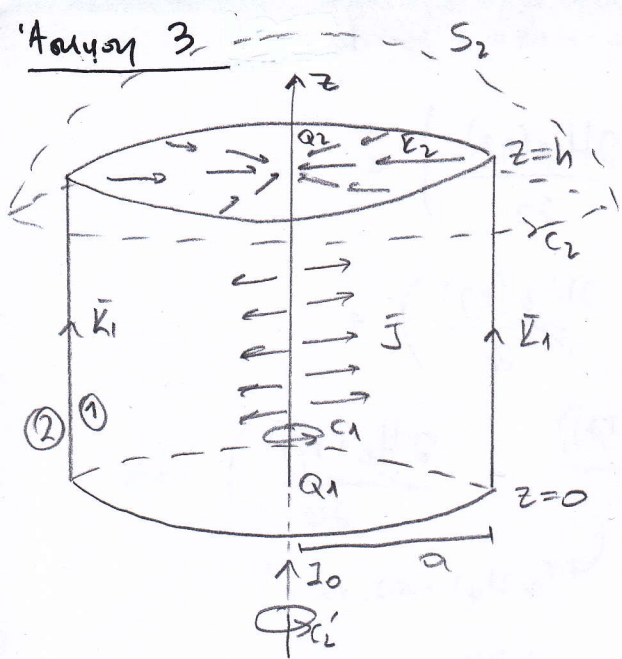 Άσκηση 3
S₂
z
Q₂
K₂
z=h
C₂
K̄₁
J̄
K̄₁
② ①
C₁
Q₁
z=0
a
I₀
C₂'